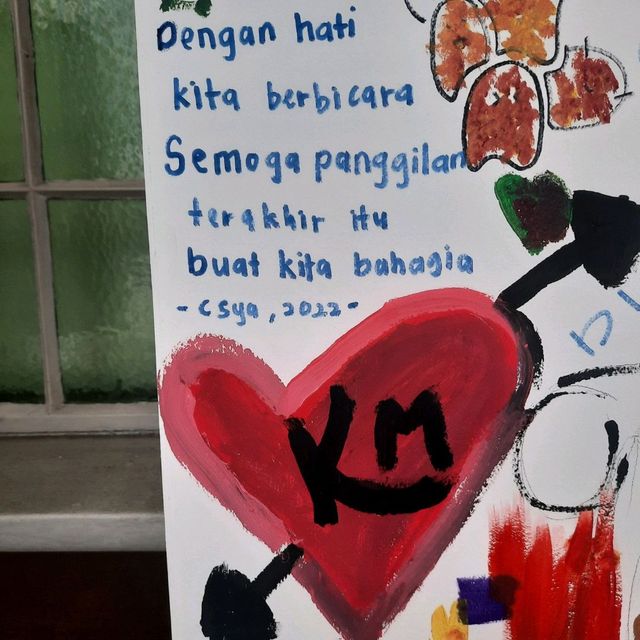 Dengan hati
kita berbicara
Semoga panggilan
terakhir itu
buat kita bahagia
- Csya, 2022 -
KM